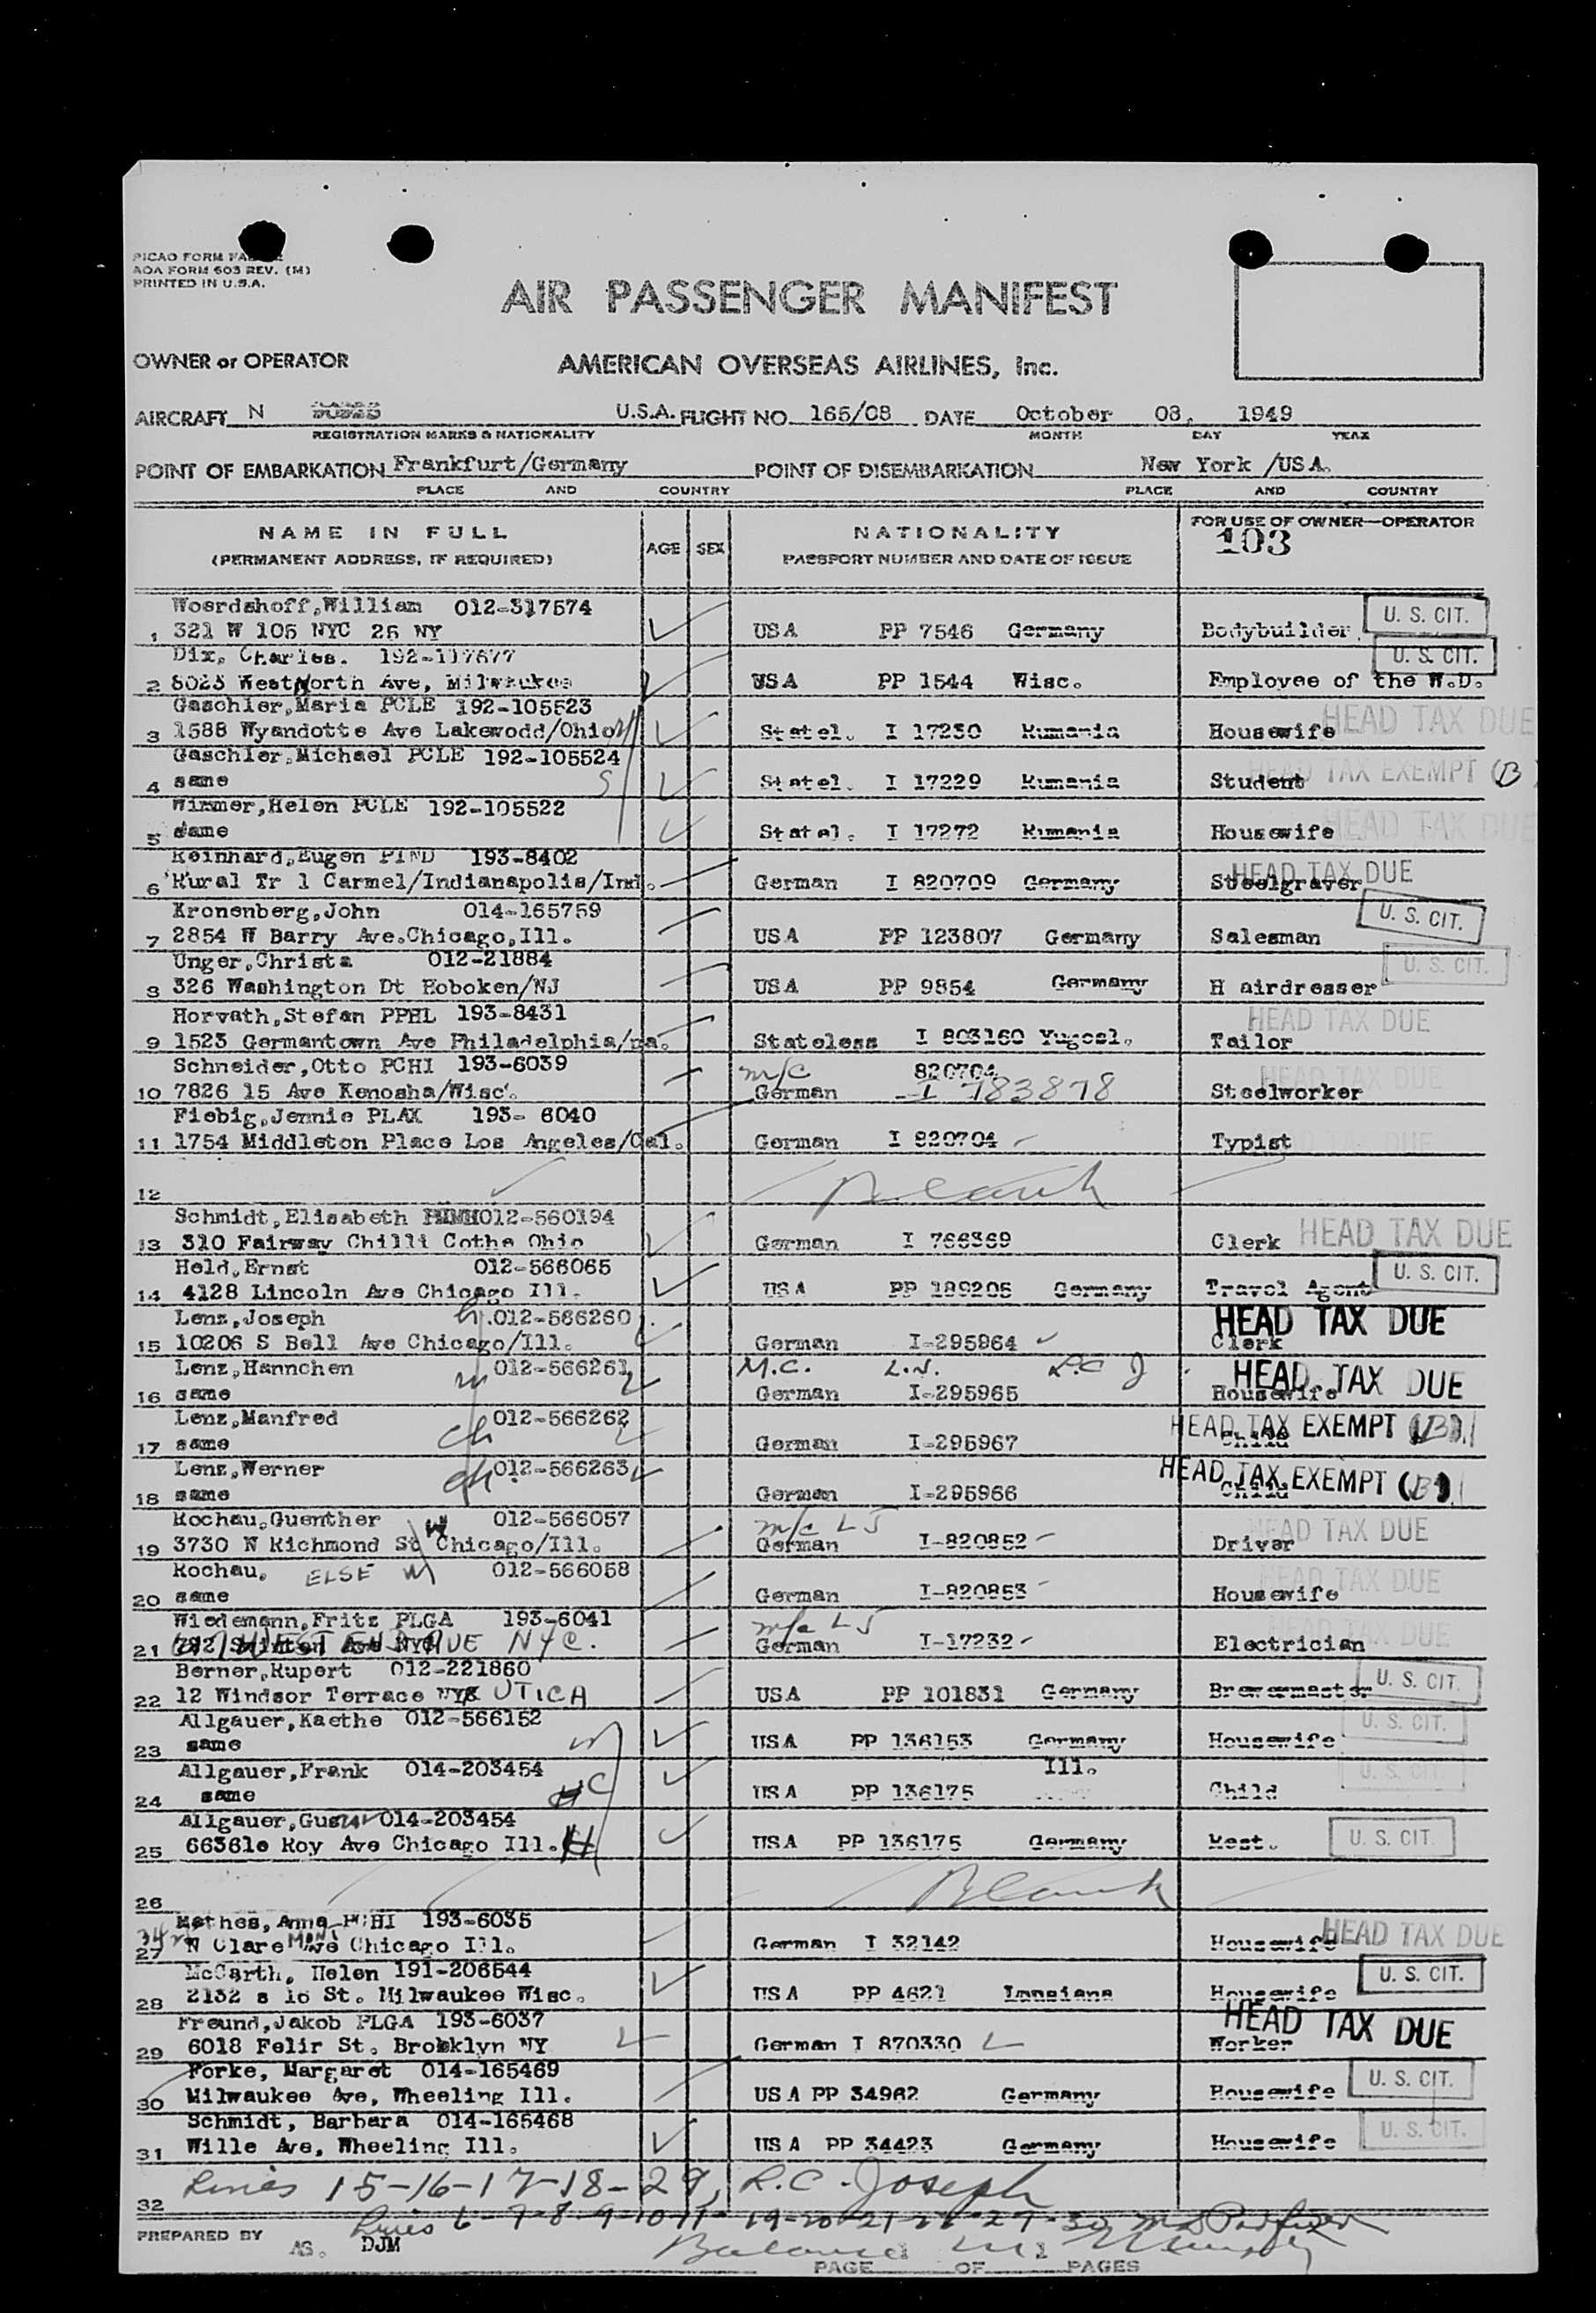 PICAO FORM
AOA FORM 603 REV. (M)
PRINTED IN U.S.A.
AIR PASSENGER MANIFEST
OWNER or OPERATOR AMERICAN OVERSEAS AIRLINES, Inc.
AIRCRAFT N U.S.A. FLIGHT NO. 165/08 DATE October 08, 1949
REGISTRATION MARKS & NATIONALITY MONTH DAY YEAR
POINT OF EMBARKATION Frankfurt/Germany POINT OF DISEMBARKATION New York /USA.
PLACE AND COUNTRY PLACE AND COUNTRY
NAME IN FULL AGE SEX NATIONALITY FOR USE OF OWNER—OPERATOR
(PERMANENT ADDRESS, IF REQUIRED) PASSPORT NUMBER AND DATE OF ISSUE 103
Woerdehoff,William 012-317574 U. S. CIT.
1 321 W 105 NYC 25 NY USA PP 7546 Germany Bodybuilder
Dix, Charles. 192-117677 U. S. CIT.
2 5023 West North Ave, Milwaukee USA PP 1544 Wisc. Employee of the W.D.
Gaschler,Maria PCLE 192-105523 HEAD TAX DUE
3 1588 Wyandotte Ave Lakewodd/Ohio Statel. I 17230 Rumania Housewife
Gaschler,Michael PCLE 192-105524 HEAD TAX EXEMPT (B)
4 same Statel. I 17229 Rumania Student
Wimmer,Helen PCLE 192-105522 HEAD TAX DUE
5 same Statel. I 17272 Rumania Housewife
Reinhard,Eugen PIND 193-8402 HEAD TAX DUE
6 Rural Tr 1 Carmel/Indianapolis/Ind. German I 820709 Germany Steelgraver
Kronenberg,John 014-165759 U. S. CIT.
7 2854 W Barry Ave.Chicago,Ill. USA PP 123807 Germany Salesman
Unger,Christa 012-21884 U. S. CIT.
8 326 Washington Dt Hoboken/NJ USA PP 9854 Germany H airdresser
Horvath,Stefan PPHL 193-8431 HEAD TAX DUE
9 1523 Germantown Ave Philadelphia/pa. Stateless I 803160 Yugosl. Tailor
Schneider,Otto PCHI 193-6039 m/c 820704 HEAD TAX DUE
10 7826 15 Ave Kenosha/Wisc. German I 783878 Steelworker
Fiebig,Jennie PLAX 193- 6040
11 1754 Middleton Place Los Angeles/Cal. German I 820704 Typist
12 Blank
Schmidt,Elisabeth 012-560194 HEAD TAX DUE
13 310 Fairway Chilli Cothe Ohio German I 766369 Clerk
Held,Ernst 012-566065 U. S. CIT.
14 4128 Lincoln Ave Chicago Ill. USA PP 189205 Germany Travel Agent
Lenz,Joseph h 012-566260 HEAD TAX DUE
15 10206 S Bell Ave Chicago/Ill. German I-295964 Clerk
Lenz,Hannchen w 012-566261 M.C. L.N. R.C J HEAD TAX DUE
16 same German I-295965 Housewife
Lenz,Manfred ch 012-566262 HEAD TAX EXEMPT (B)
17 same German I-295967 Child
Lenz,Werner ch 012-566263 HEAD TAX EXEMPT (B)
18 same German I-295966 Child
Kochau,Guenther 012-566057 m/c LJ HEAD TAX DUE
19 3730 N Richmond St Chicago/Ill. German I-820852 Driver
Kochau, ELSE W 012-566058 HEAD TAX DUE
20 same German I-820853 Housewife
Wiedemann,Fritz PLGA 193-6041 m/c LJ HEAD TAX DUE
21 NYC. German I-17232 Electrician
Berner,Rupert 012-221860 U. S. CIT.
22 12 Windsor Terrace UTICA USA PP 101831 Germany Brewermaster
Allgauer,Kaethe 012-566152 U. S. CIT.
23 same W USA PP 136153 Germany Housewife
Allgauer,Frank 014-203454 Ill. U. S. CIT.
24 same C USA PP 136175 Child
Allgauer,Gustav 014-203454 U. S. CIT.
25 66361e Roy Ave Chicago Ill. H USA PP 136175 Germany Rest.
26 Blank
Mathes, Anna PCHI 193-6035 HEAD TAX DUE
27 N Clare MONT Ave Chicago Ill. German I 32142 Housewife
McCarth, Helen 191-206544 U. S. CIT.
28 2132 s 16 St. Milwaukee Wisc. USA PP 4621 Housewife
Freund,Jakob PLGA 193-6037 HEAD TAX DUE
29 6018 Felir St. Brooklyn NY German I 870330 Worker
Forke, Margaret 014-165469 U. S. CIT.
30 Milwaukee Ave, Wheeling Ill. US A PP 34962 Germany Housewife
Schmidt, Barbara 014-165468 U. S. CIT.
31 Wille Ave, Wheeling Ill. US A PP 34423 Germany Housewife
32 Lines 15-16-17-18-29, R.C. Joseph
Lines 6-7-8-9-10-11-19-20-21-22-27-30
PREPARED BY AS. DJM Balance
PAGE 1 OF 1 PAGES